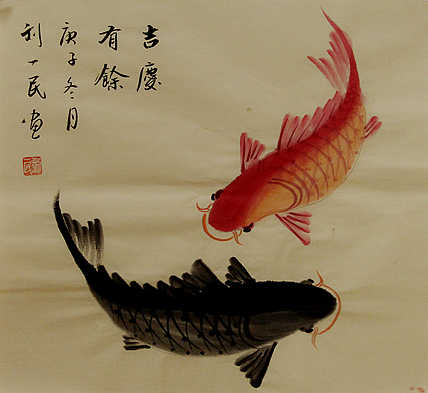 吉慶
有餘
庚子冬月
利一民畫